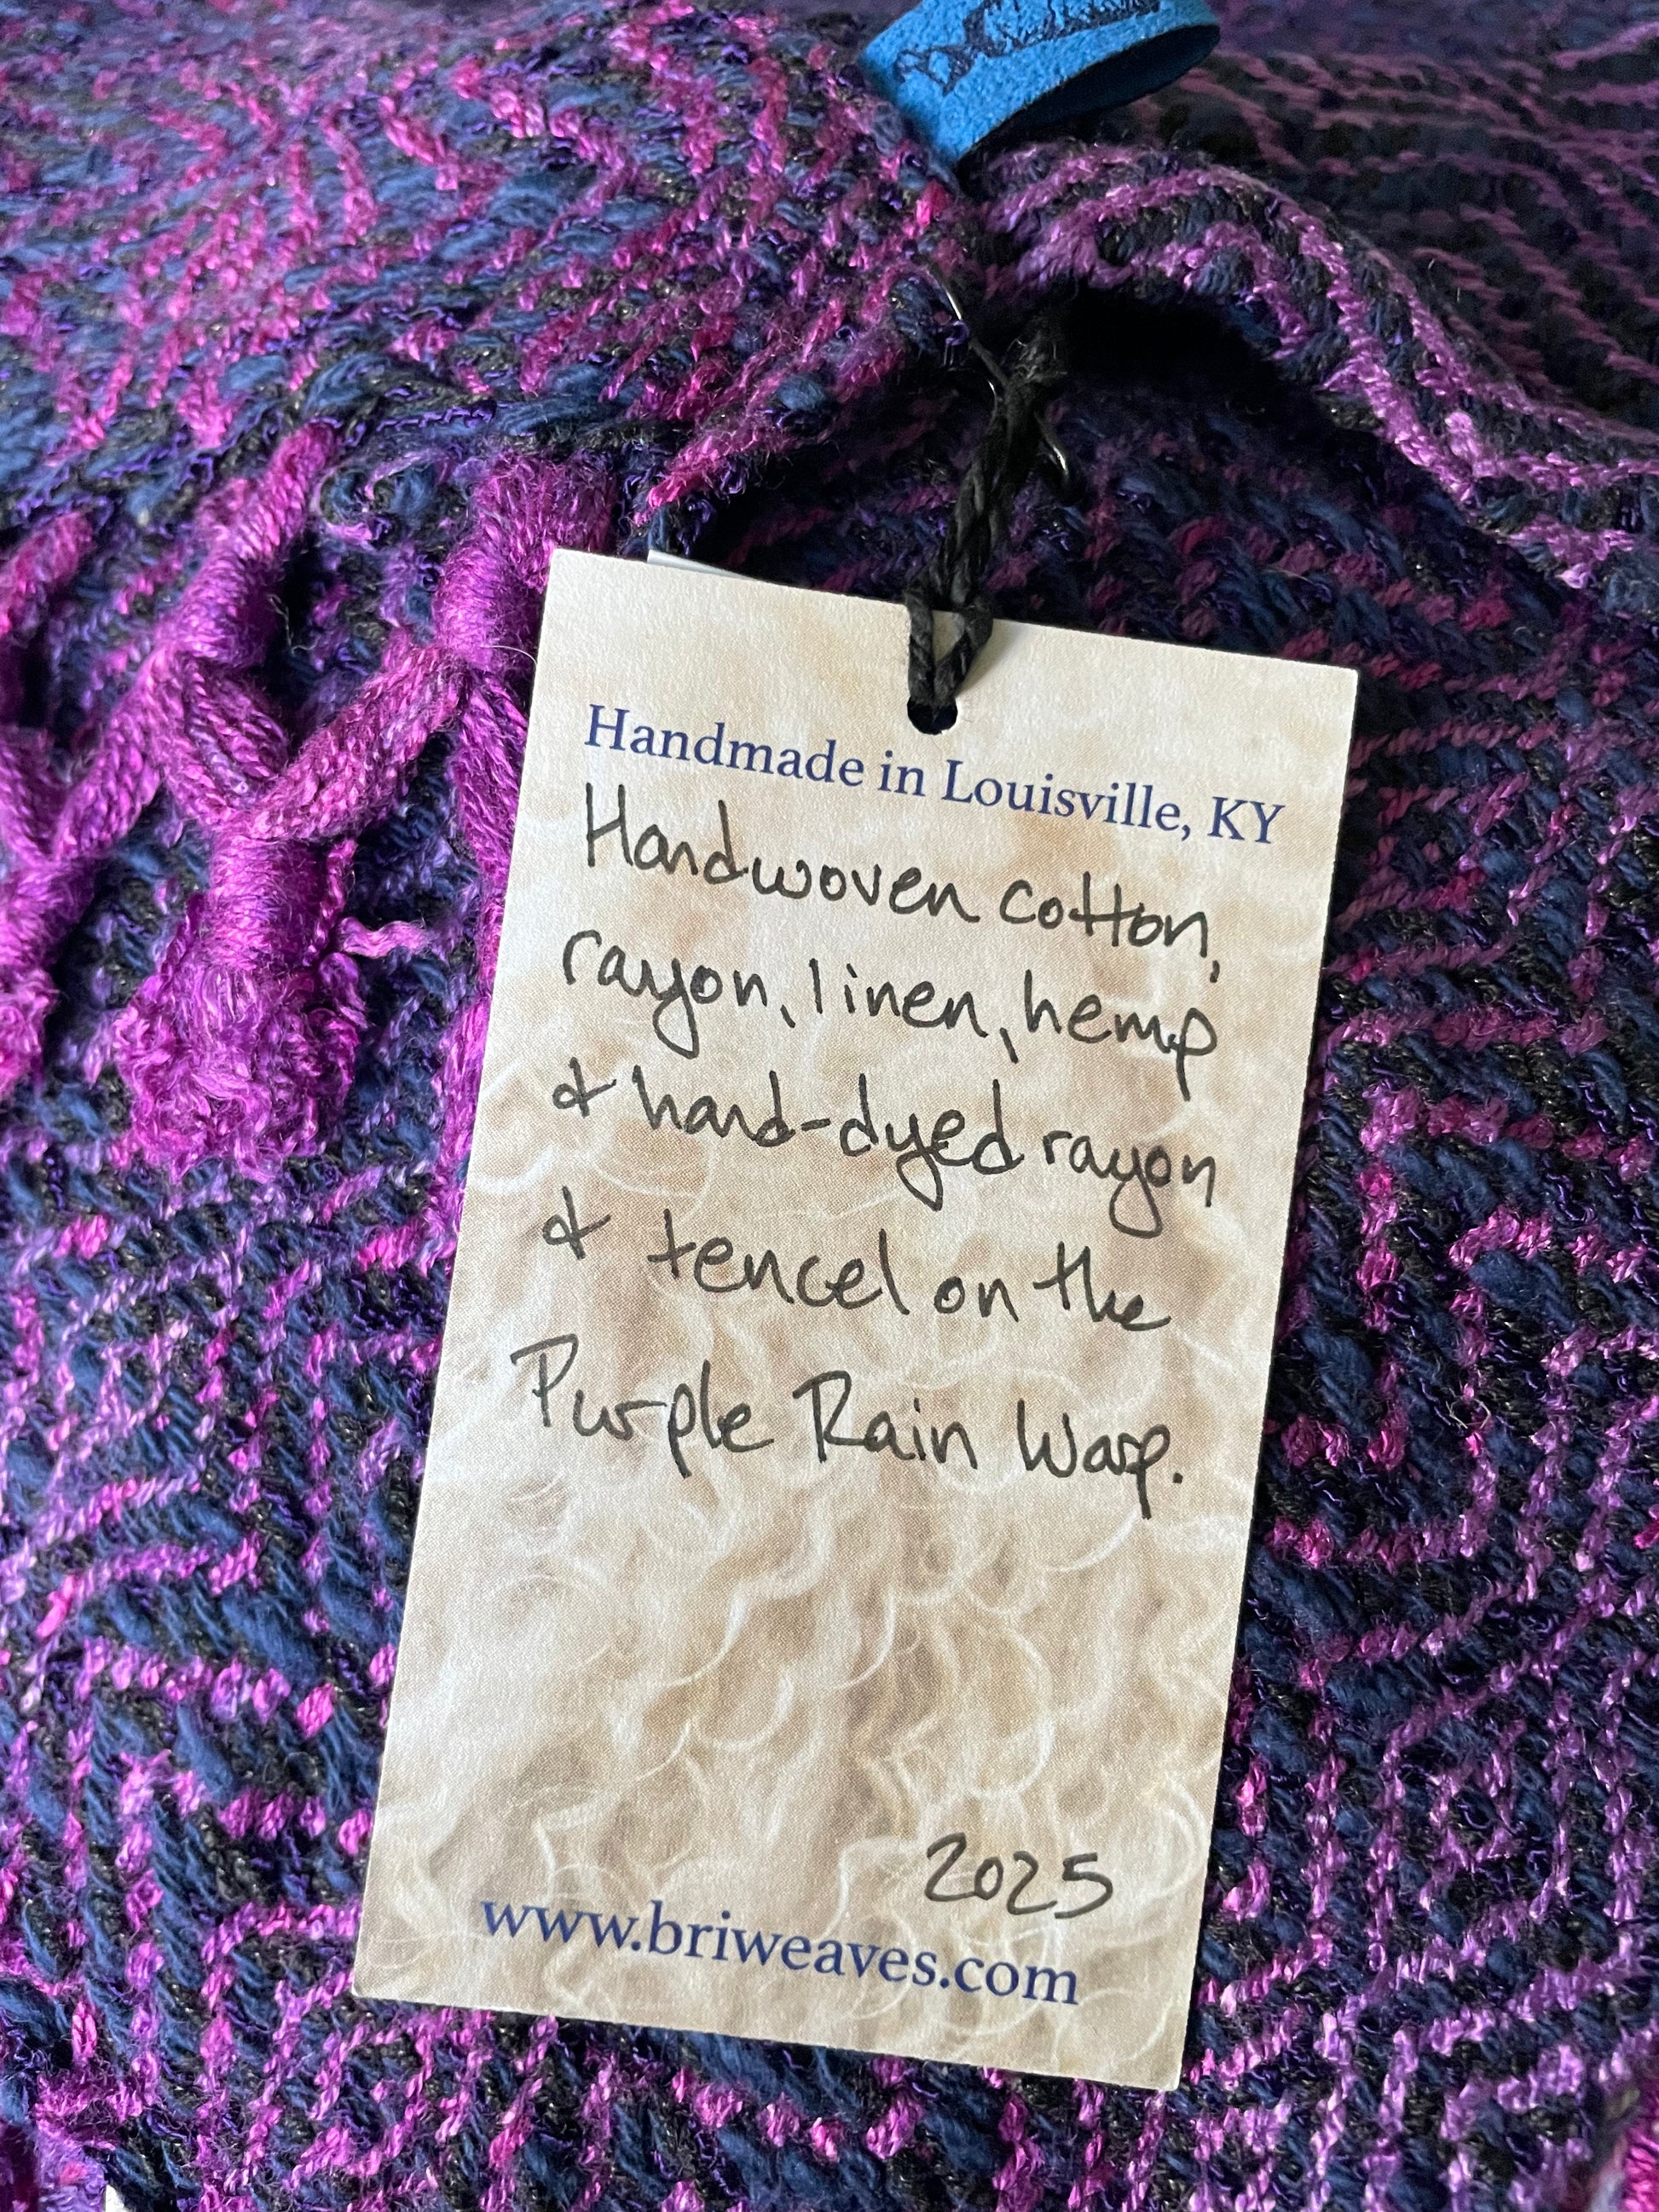 Handmade in Louisville, KY
Handwoven cotton,
rayon, linen, hemp
& hand-dyed rayon
& tencel on the
Purple Rain Warp.
2025
www.briweaves.com